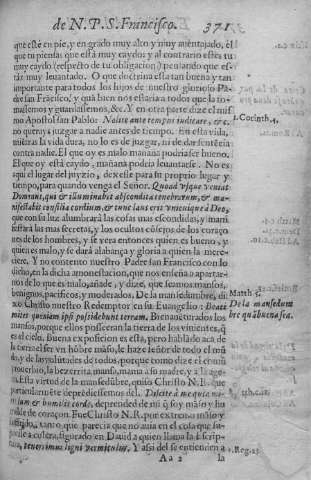 de N. P. S. Francisco. 371
que esté en pie, y en grado muy alto y muy auentajado, él
que tu piensas que está muy caydo; y al contrario estés tu
muy caydo respecto de tu obligacion, pensando que es-
tás muy leuantado. O que doctrina esta tan buena y tan
importante para todos los hijos de nuestro glorioso Pa-
dre san Frācisco, y quā bien nos estaria a todos que la to-
massemos y guardassemos, &c. Y en otra parte dize el mis
mo Apostol san Pablo: Nolite ante tempus iudicare, &c.
no querays juzgar a nadie antes de tiempo. En esta vida,
miētras la vida dura, no lo es de juzgar, ni de dar sentēcia
contra nadie. El que oy es malo mañana podria ser bueno.
El que oy está caydo, mañana podria leuantarse. No es
aqui el lugar del juyzio, dexele para su proprio lugar y
tiempo, para quando venga el Señor. Quoad vsque veniat
Dominus, qui & illuminabit abscondita tenebrarum, & ma-
nifestabit consilia cordium, & tunc laus erit vnicuique à Deo,
que con su luz alumbrará las cosas mas escondidas, y mani
festará las mas secretas, y los ocultos cōsejos de los coraço
nes de los hombres, y se vera entonces quien es bueno, y
quien es malo, y se dará alabança y gloria a quien la mere-
ciere. Y no contento nuestro Padre san Francisco con lo
dicho, en dicha amonestacion, que nos enseña o apartar-
nos de lo que es malo, añade, y dize, que seamos mansos,
benignos, pacificos, y moderados. De la mansedumbre, di
xo Christo nuestro Redemptor en su Euangelio: Beati
mites quoniam ipsi possidebunt terram. Bienauēturados los
mansos, porque ellos posseeran la tierra de los viuientes, q̄
es el cielo. Buena exposicion es esta, pero hablādo acá de
mansos, y la
uilium & humilis corde, deprended de mi q̄ soy māso y hu
milde de coraçon. Fue Christo N. R. por extremo māso y
tanto, que parecia que no auia en el cosa que su-
figurado en Dauid a quien llama la Escrip-
tura, tenerrimus ligni vermiculus. Y assi del se entienden a
Aa 2 la
1. Corinth. 4.
Matth. 5.
De la mansedum
bre quā buena sea.
2. Reg. 23